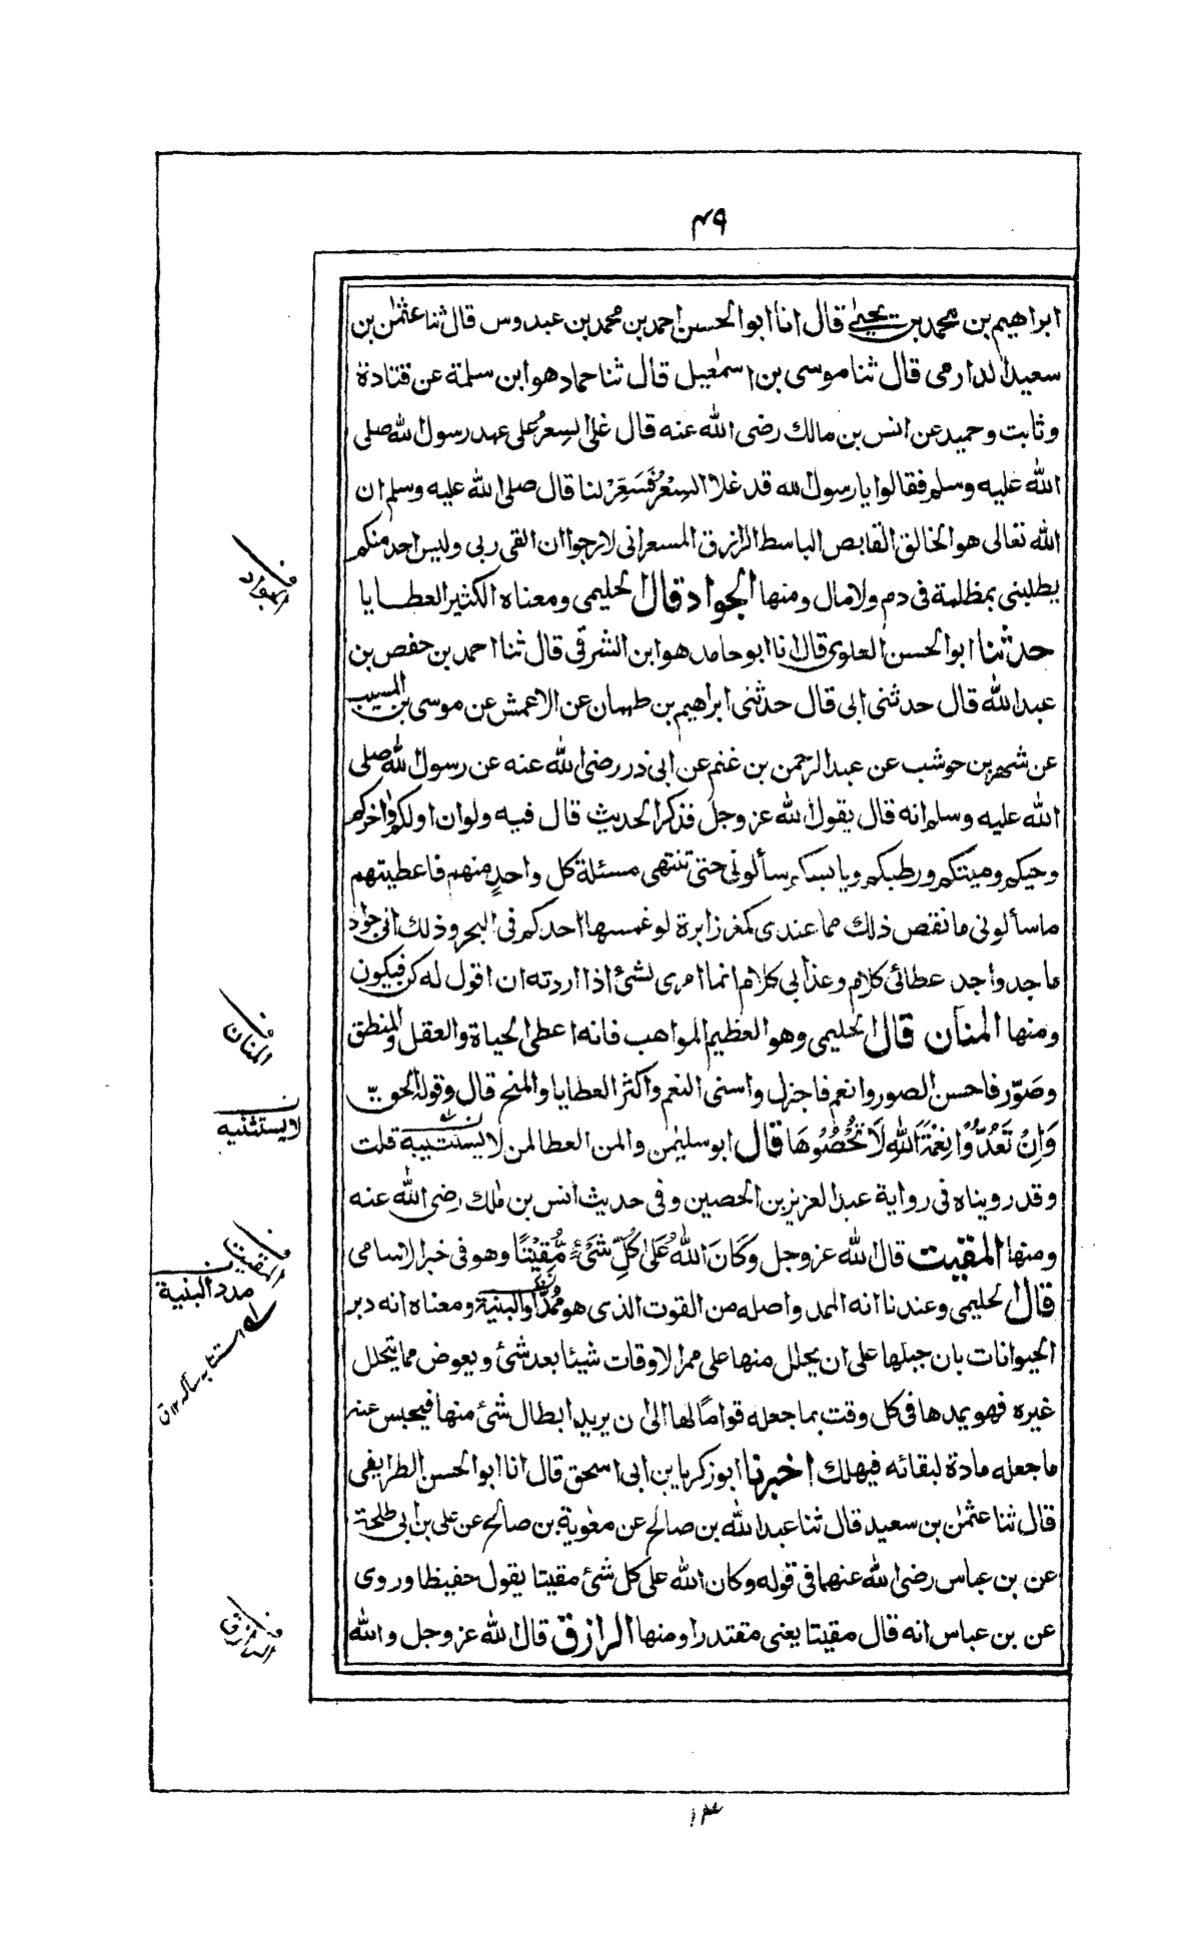 ٤٩
ابراهيم بن محمد بن يحيى قال انا ابو الحسن احمد بن محمد بن عبدوس قال ثنا عثمٰن بن
سعيد الدارمى قال ثنا موسى بن اسمٰعيل قال ثنا حماد هو ابن سلمة عن قتادة
وثابت وحميد عن انس بن مالك رضى الله عنه قال غلى السعرُ على عهد رسول الله صلى
الله عليه وسلم فقالوا يا رسول الله قد غلا السِعْرُ فَسَعِّرْ لنا قال صلى الله عليه وسلم ان
الله تعالى هو الخالق القابض الباسط الرازق المسعر انى لارجوا ان القى ربى وليس احد منكم
يطلبنى بمظلمة فى دم ولا مال ومنها الجواد قال الحليمى ومعناه الكثير العطايا
حدثنا ابو الحسن العلوى قال انا ابو حامد هو ابن الشرقى قال ثنا احمد بن حفص بن
عبد الله قال حدثنى ابى قال حدثنى ابراهيم بن طهمان عن الاعمش عن موسى بن المسيب
عن شهر بن حوشب عن عبد الرحمن بن غنم عن ابى ذر رضى الله عنه عن رسول الله صلى
الله عليه وسلم انه قال يقول الله عز وجل فذكر الحديث قال فيه ولو ان اولكم واخركم
وحيكم وميتكم ورطبكم ويابسكم سألونى حتى تنتهى مسئلة كل واحدٍ منهم فاعطيتهم
ما سألونى ما نقص ذلك مما عندى كمغرز ابرة لو غمسها احدكم فى البحر وذلك انى جواد
ماجد واجد عطائى كلام وعذابى كلام انما امرى لشئ اذا اردته ان اقول له كن فيكون
ومنها المنان قال الحليمى وهو العظيم المواهب فانه اعطى الحياة والعقل والمنطق
وصَوّر فاحسن الصور وانعم فاجزل واسنى النعم واكثر العطايا والمنح قال وقوله الحق
وَاِنْ تَعُدُّوْا نِعْمَةَ اللهِ لَا تُحْصُوْهَا قال ابو سليمٰن والمن العطا لمن لا يستثيبه قلت
وقد رويناه فى رواية عبد العزيز بن الحصين وفى حديث انس بن مٰلك رضى الله عنه
ومنها المقيت قال الله عز وجل وَكَانَ اللهُ عَلىٰ كُلِّ شَىْءٍ مُّقِيْتًا وهو فى خبر الاسامى
قال الحليمى وعندنا انه الممد واصله من القوت الذى هو مُمِدُّ او البنية ومعناه انه دبر
الحيوانات بان جبلها على ان يحلل منها على ممر الاوقات شيئا بعد شئ ويعوض مما يتحلل
غيره فهو يمدها فى كل وقت بما جعله قوامًا لها الى ن يريد ابطال شئ منها فيحبس عنه
ما جعله مادة لبقائه فيهلك اخبرنا ابو زكريا بن ابى اسحق قال انا ابو الحسن الطرايفى
قال ثنا عثمٰن بن سعيد قال ثنا عبد الله بن صالح عن معٰوية بن صالح عن على بن ابى طلحة
عن بن عباس رضى الله عنهما فى قوله وكان الله على كل شئ مقيتا يقول حفيظا وروى
عن بن عباس انه قال مقيتا يعنى مقتدرا ومنها الرازق قال الله عز وجل والله
الجواد
المنان
لا يستثنيه
المقيت
مدد البنية
الرازق
١٣